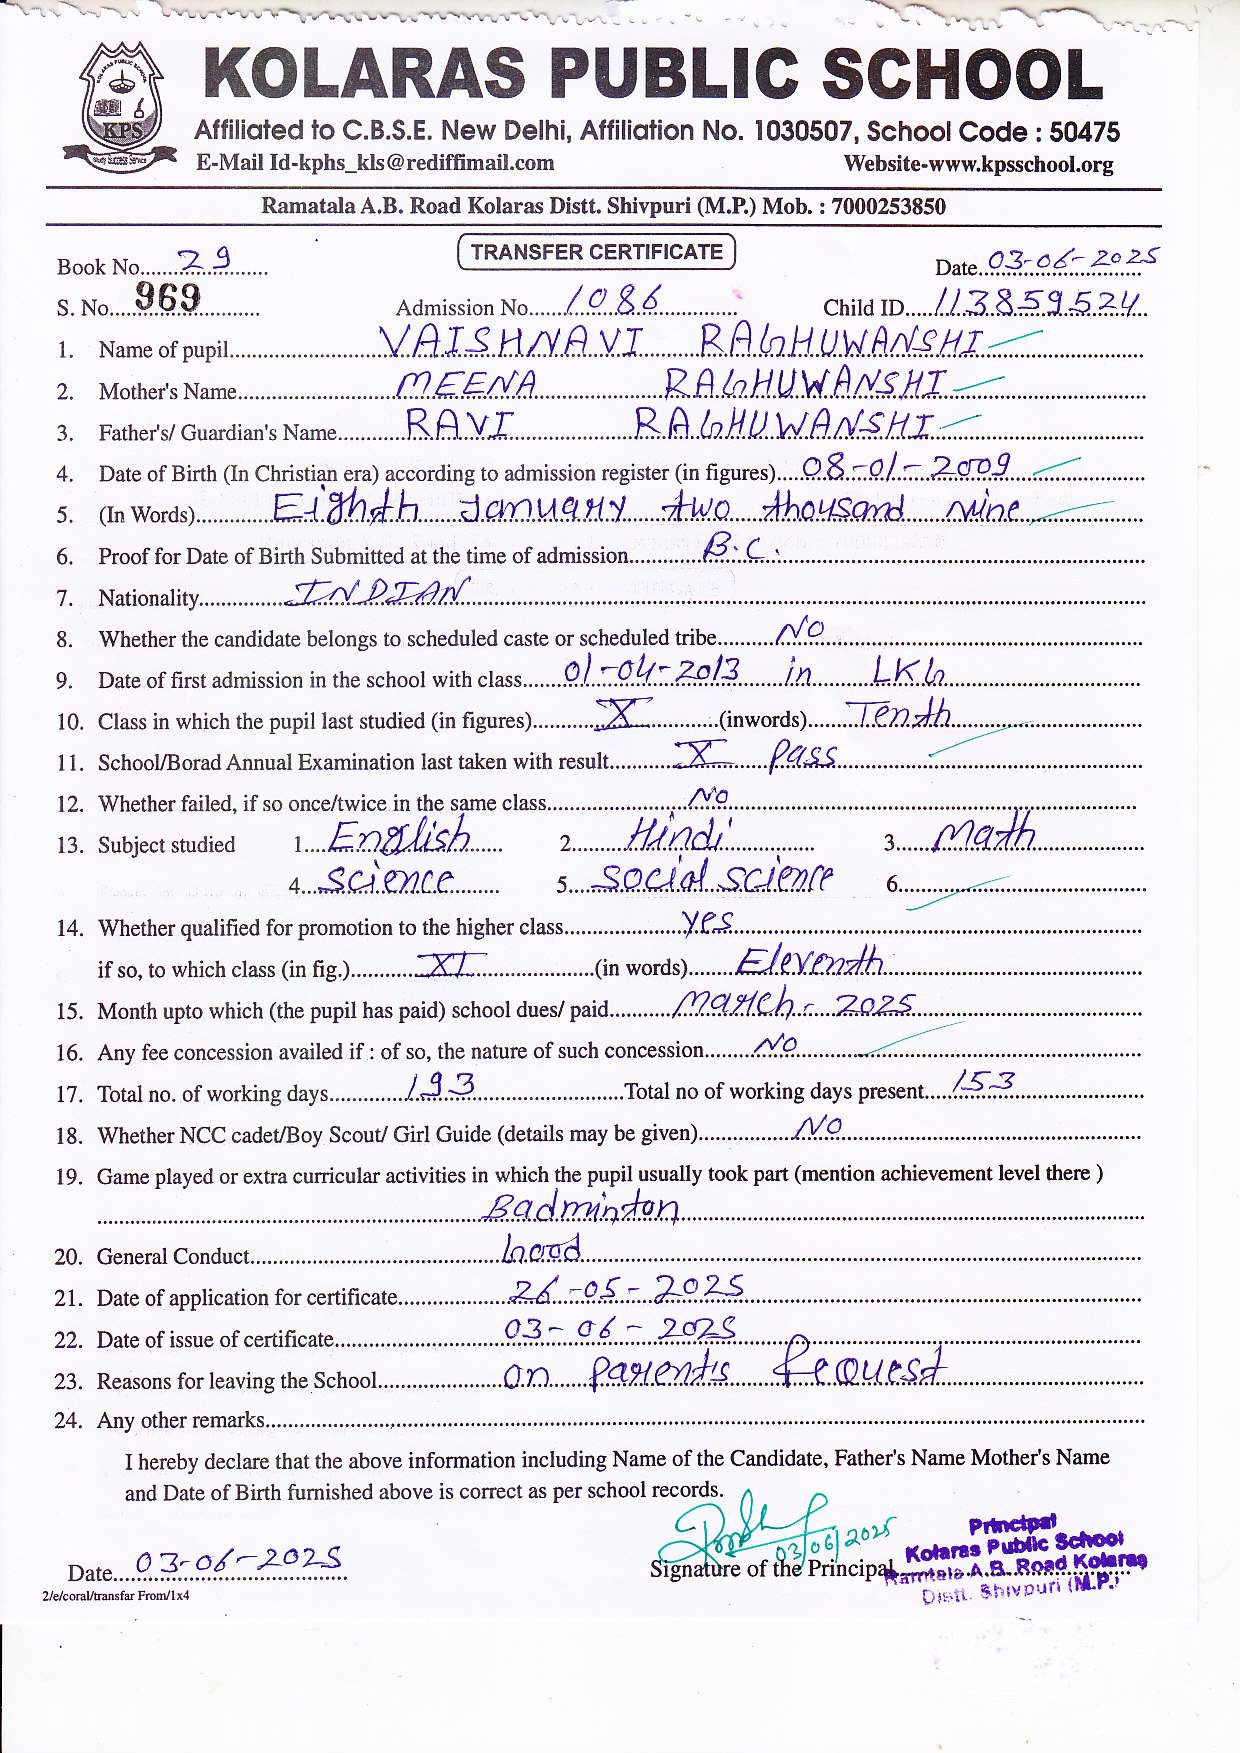 KOLARAS PUBLIC SCHOOL
Affiliated to C.B.S.E. New Delhi, Affiliation No. 1030507, School Code : 50475
E-Mail Id-kphs_kls@rediffimail.com Website-www.kpsschool.org
KOLARAS PUBLIC SCHOOL
KPS
Study Success Service
Ramatala A.B. Road Kolaras Distt. Shivpuri (M.P.) Mob. : 7000253850
TRANSFER CERTIFICATE
Book No. 29 Date 03-06-2025
S. No. 969 Admission No. 1086 Child ID 113859524
1. Name of pupil VAISHNAVI RAGHUWANSHI
2. Mother's Name MEENA RAGHUWANSHI
3. Father's/ Guardian's Name RAVI RAGHUWANSHI
4. Date of Birth (In Christian era) according to admission register (in figures) 08-01-2009
5. (In Words) Eighth January two thousand Nine
6. Proof for Date of Birth Submitted at the time of admission B.C.
7. Nationality INDIAN
8. Whether the candidate belongs to scheduled caste or scheduled tribe NO
9. Date of first admission in the school with class 01-04-2013 in LKG
10. Class in which the pupil last studied (in figures) X (inwords) Tenth
11. School/Borad Annual Examination last taken with result X Pass
12. Whether failed, if so once/twice in the same class NO
13. Subject studied 1. English 2. Hindi 3. Math
4. Science 5. Social Science 6.
14. Whether qualified for promotion to the higher class yes
if so, to which class (in fig.) XI (in words) Eleventh
15. Month upto which (the pupil has paid) school dues/ paid March - 2025
16. Any fee concession availed if : of so, the nature of such concession NO
17. Total no. of working days 193 Total no of working days present 153
18. Whether NCC cadet/Boy Scout/ Girl Guide (details may be given) NO
19. Game played or extra curricular activities in which the pupil usually took part (mention achievement level there )
Badminton
20. General Conduct Good
21. Date of application for certificate 26-05-2025
22. Date of issue of certificate 03-06-2025
23. Reasons for leaving the School on Parents Request
24. Any other remarks
I hereby declare that the above information including Name of the Candidate, Father's Name Mother's Name
and Date of Birth furnished above is correct as per school records.
03/06/2025
Date 03-06-2025 Signature of the Principal
Principal
Kolaras Public School
Ramtala A.B. Road Kolaras
Distt. Shivpuri (M.P.)
2/e/coral/transfar From/1x4